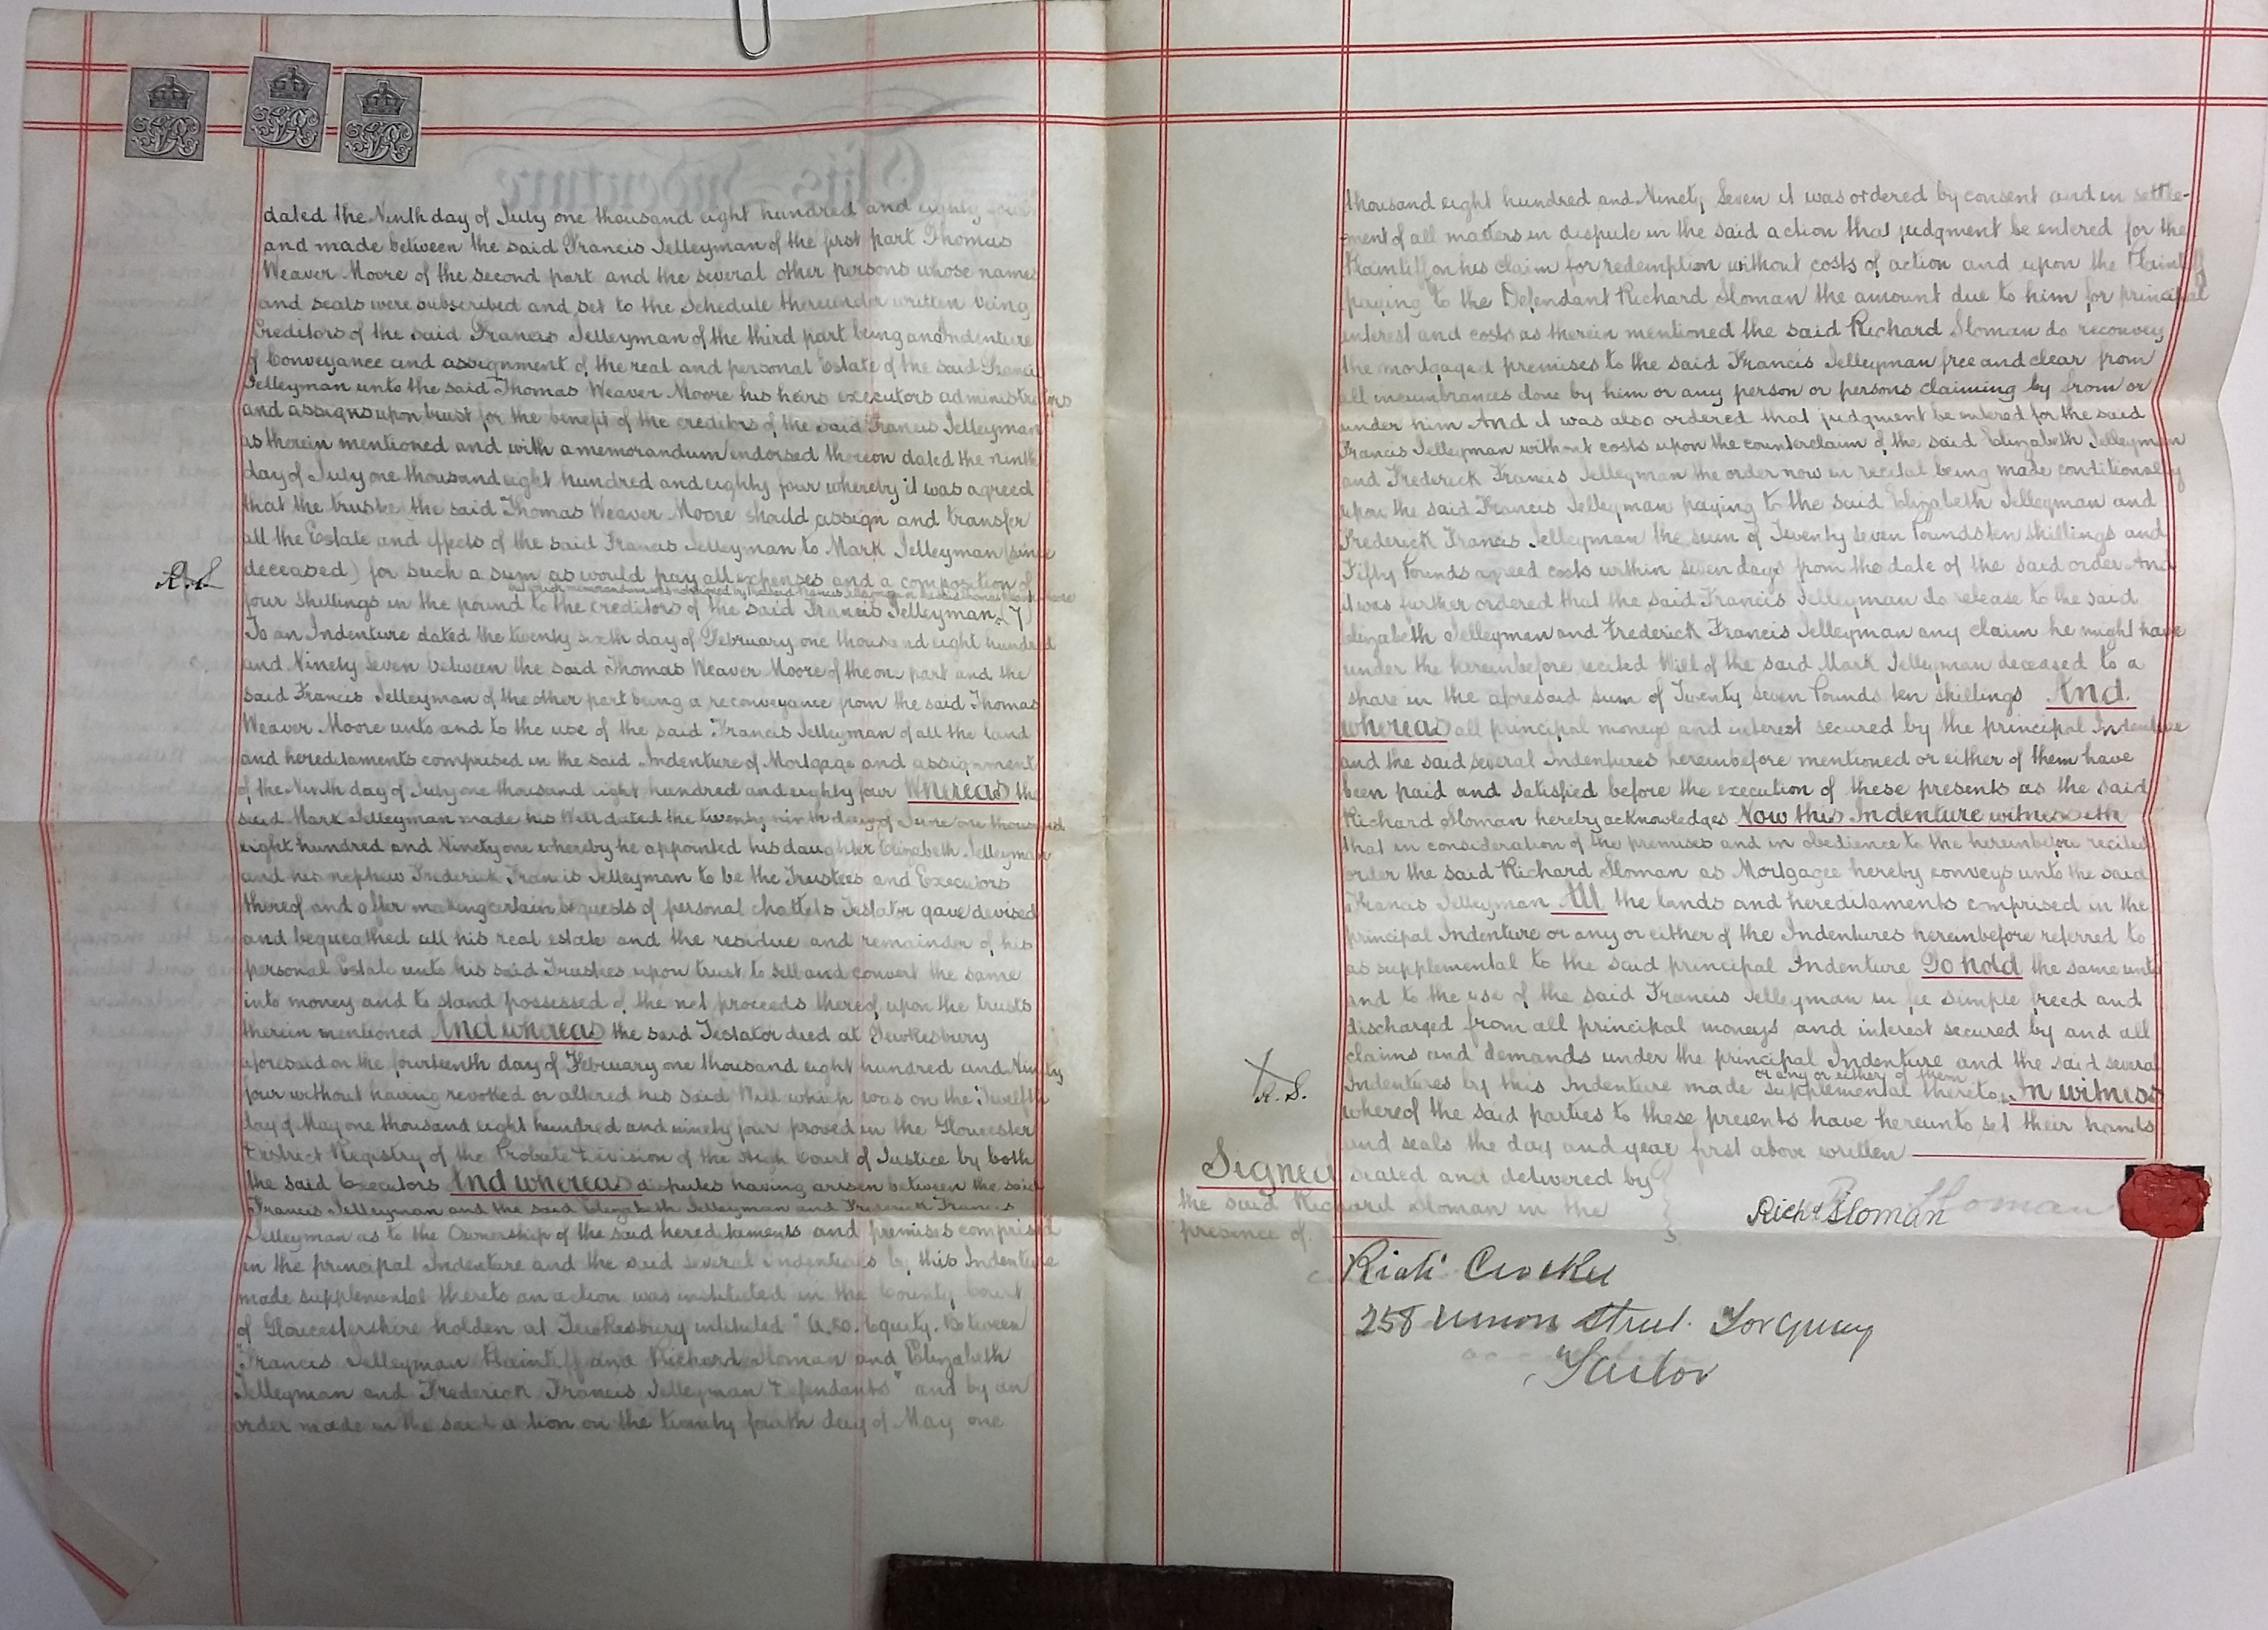 dated the Ninth day of July one thousand eight hundred and eighty four
and made between the said Francis Jelleyman of the first part Thomas
Weaver Moore of the second part and the several other persons whose names
and seals were subscribed and set to the Schedule thereunder written being
Creditors of the said Francis Jelleyman of the third part being an Indenture
of Conveyance and assignment of the real and personal Estate of the said Francis
Jelleyman unto the said Thomas Weaver Moore his heirs executors administrators
and assigns upon trust for the benefit of the creditors of the said Francis Jelleyman
as therein mentioned and with a memorandum endorsed thereon dated the ninth
day of July one thousand eight hundred and eighty four whereby it was agreed
that the trustee the said Thomas Weaver Moore should assign and transfer
all the Estate and effects of the said Francis Jelleyman to Mark Jelleyman (since
R.S.
deceased) for such a sum as would pay all expenses and a composition of
which memorandum was signed by the said Francis Jelleyman
four shillings in the pound to the creditors of the said Francis Jelleyman (7)
To an Indenture dated the twenty sixth day of February one thousand eight hundred
and Ninety Seven between the said Thomas Weaver Moore of the one part and the
said Francis Jelleyman of the other part being a reconveyance from the said Thomas
Weaver Moore unto and to the use of the said Francis Jelleyman of all the land
and hereditaments comprised in the said Indenture of Mortgage and assignment
of the Ninth day of July one thousand eight hundred and eighty four Whereas the
said Mark Jelleyman made his Will dated the twenty ninth day of June one thousand
eight hundred and Ninety one whereby he appointed his daughter Elizabeth Jelleyman
and his nephew Frederick Francis Jelleyman to be the Trustees and Executors
thereof and after making certain bequests of personal chattels Testator gave devised
and bequeathed all his real estate and the residue and remainder of his
personal Estate unto his said Trustees upon trust to sell and convert the same
into money and to stand possessed of the net proceeds thereof upon the trusts
therein mentioned And whereas the said Testator died at Tewkesbury
aforesaid on the fourteenth day of February one thousand eight hundred and Ninety
four without having revoked or altered his said Will which was on the Twelfth
day of May one thousand eight hundred and ninety four proved in the Gloucester
District Registry of the Probate Division of the High Court of Justice by both
the said Executors And whereas disputes having arisen between the said
Francis Jelleyman and the said Elizabeth Jelleyman and Frederick Francis
Jelleyman as to the Ownership of the said hereditaments and premises comprised
in the principal Indenture and the said several Indentures by this Indenture
made supplemental thereto an action was instituted in the County Court
of Gloucestershire holden at Tewkesbury intituled " Equity. Between
"Francis Jelleyman Plaintiff and Richard Sloman and Elizabeth
"Jelleyman and Frederick Francis Jelleyman Defendants" and by an
order made in the said action on the twenty fourth day of May one
thousand eight hundred and Ninety Seven it was ordered by consent and in settle-
-ment of all matters in dispute in the said action that judgment be entered for the
Plaintiff on his claim for redemption without costs of action and upon the Plaintiff
paying to the Defendant Richard Sloman the amount due to him for principal
interest and costs as therein mentioned the said Richard Sloman do reconvey
the mortgaged premises to the said Francis Jelleyman free and clear from
all incumbrances done by him or any person or persons claiming by from or
under him And it was also ordered that judgment be entered for the said
Francis Jelleyman without costs upon the counterclaim of the said Elizabeth Jelleyman
and Frederick Francis Jelleyman the order now in recital being made conditionally
upon the said Francis Jelleyman paying to the said Elizabeth Jelleyman and
Frederick Francis Jelleyman the sum of Twenty Seven Pounds ten shillings and
Fifty Pounds agreed costs within seven days from the date of the said order And
it was further ordered that the said Francis Jelleyman do release to the said
Elizabeth Jelleyman and Frederick Francis Jelleyman any claim he might have
under the hereinbefore recited Will of the said Mark Jelleyman deceased to a
share in the aforesaid sum of Twenty Seven Pounds ten shillings And
whereas all principal moneys and interest secured by the principal Indenture
and the said several Indentures hereinbefore mentioned or either of them have
been paid and satisfied before the execution of these presents as the said
Richard Sloman hereby acknowledges Now this Indenture witnesseth
that in consideration of the premises and in obedience to the hereinbefore recited
order the said Richard Sloman as Mortgagee hereby conveys unto the said
Francis Jelleyman All the lands and hereditaments comprised in the
principal Indenture or any or either of the Indentures hereinbefore referred to
as supplemental to the said principal Indenture To hold the same unto
and to the use of the said Francis Jelleyman in fee simple freed and
discharged from all principal moneys and interest secured by and all
claims and demands under the principal Indenture and the said several
or any or either of them
X R.S.
Indentures by this Indenture made supplemental thereto In witness
whereof the said parties to these presents have hereunto set their hands
and seals the day and year first above written
Signed sealed and delivered by
the said Richard Sloman in the
presence of
Richd Sloman
Richd Crocker
258 Union Street Torquay
Tailor